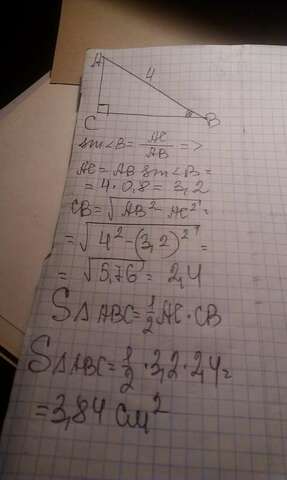 A
4
C
B
sin∠B = AC/AB =>
AC = AB · sin∠B =
= 4 · 0,8 = 3,2
CB = √(AB² - AC²) =
= √(4² - (3,2)²) =
= √5,76 = 2,4
S△ABC = 1/2 AC · CB
S△ABC = 1/2 · 3,2 · 2,4 =
= 3,84 см²